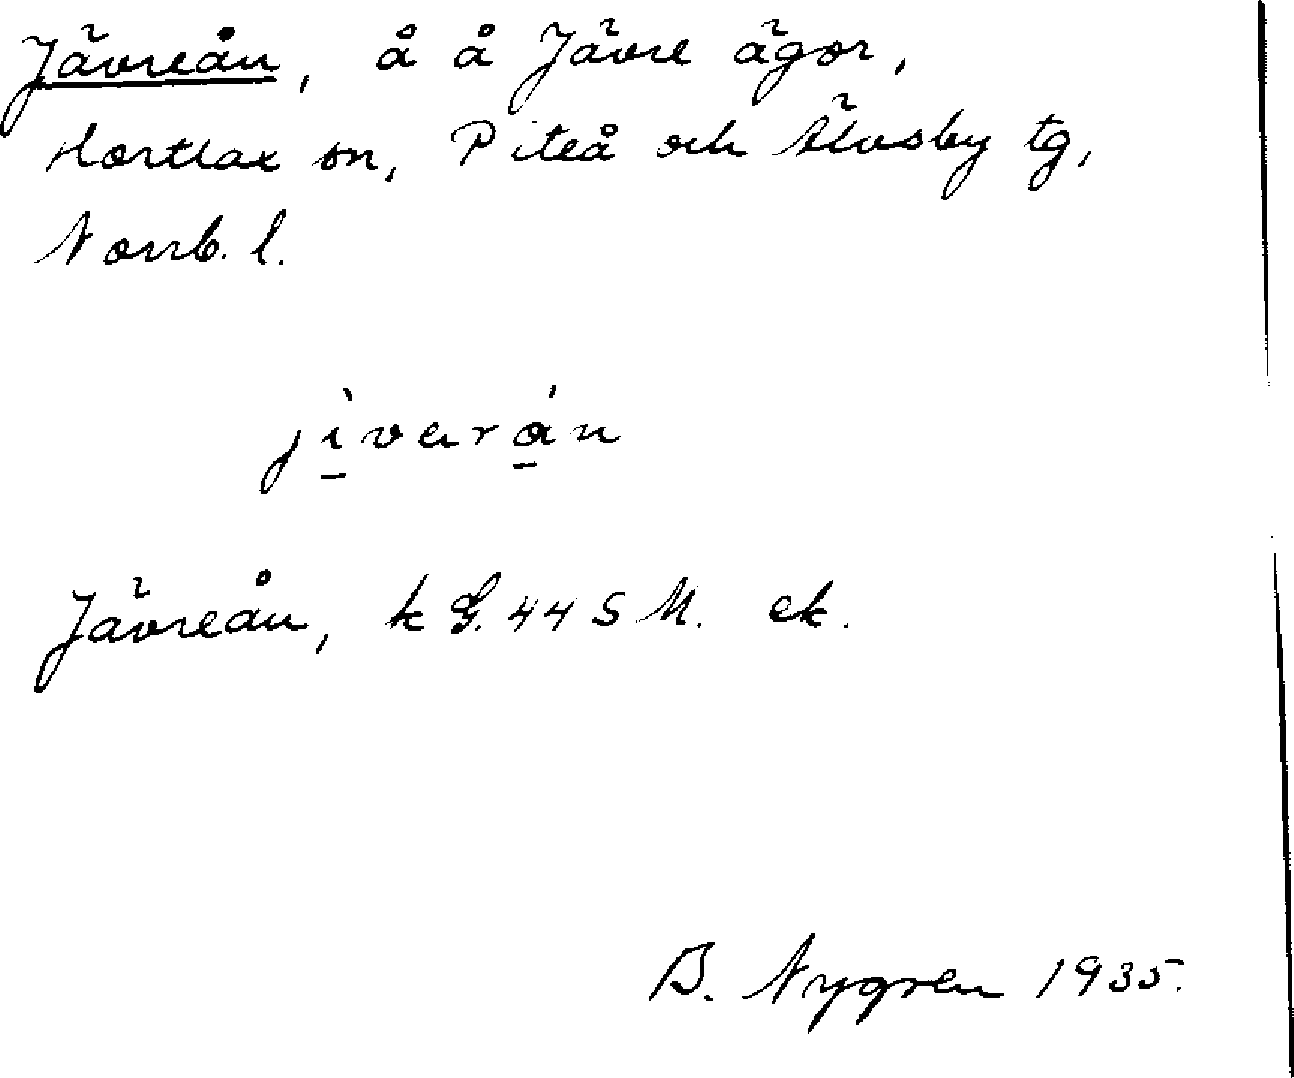 Jävreån, å å Jävre ägor,
Hortlax sn, Piteå och Älvsby tg,
Norrb. l.
jìvarán
Jävreån, k G. 44 S M. ek.
B. Nygren 1935.